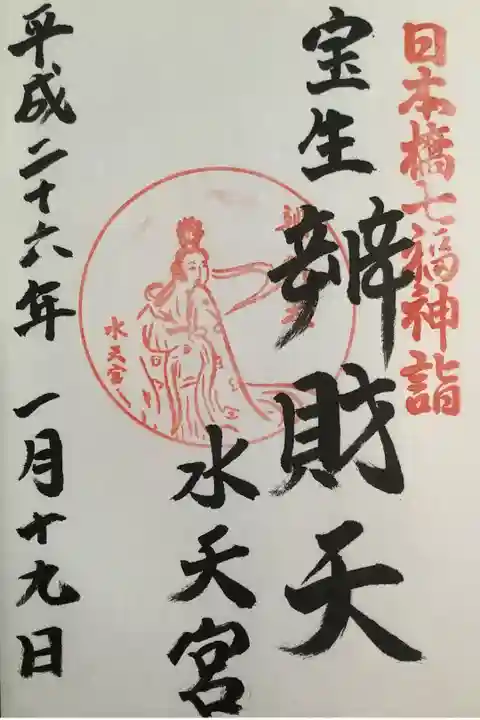 日本橋七福神詣
宝生辨財天
水天宮
水天宮
平成二十六年 一月十九日